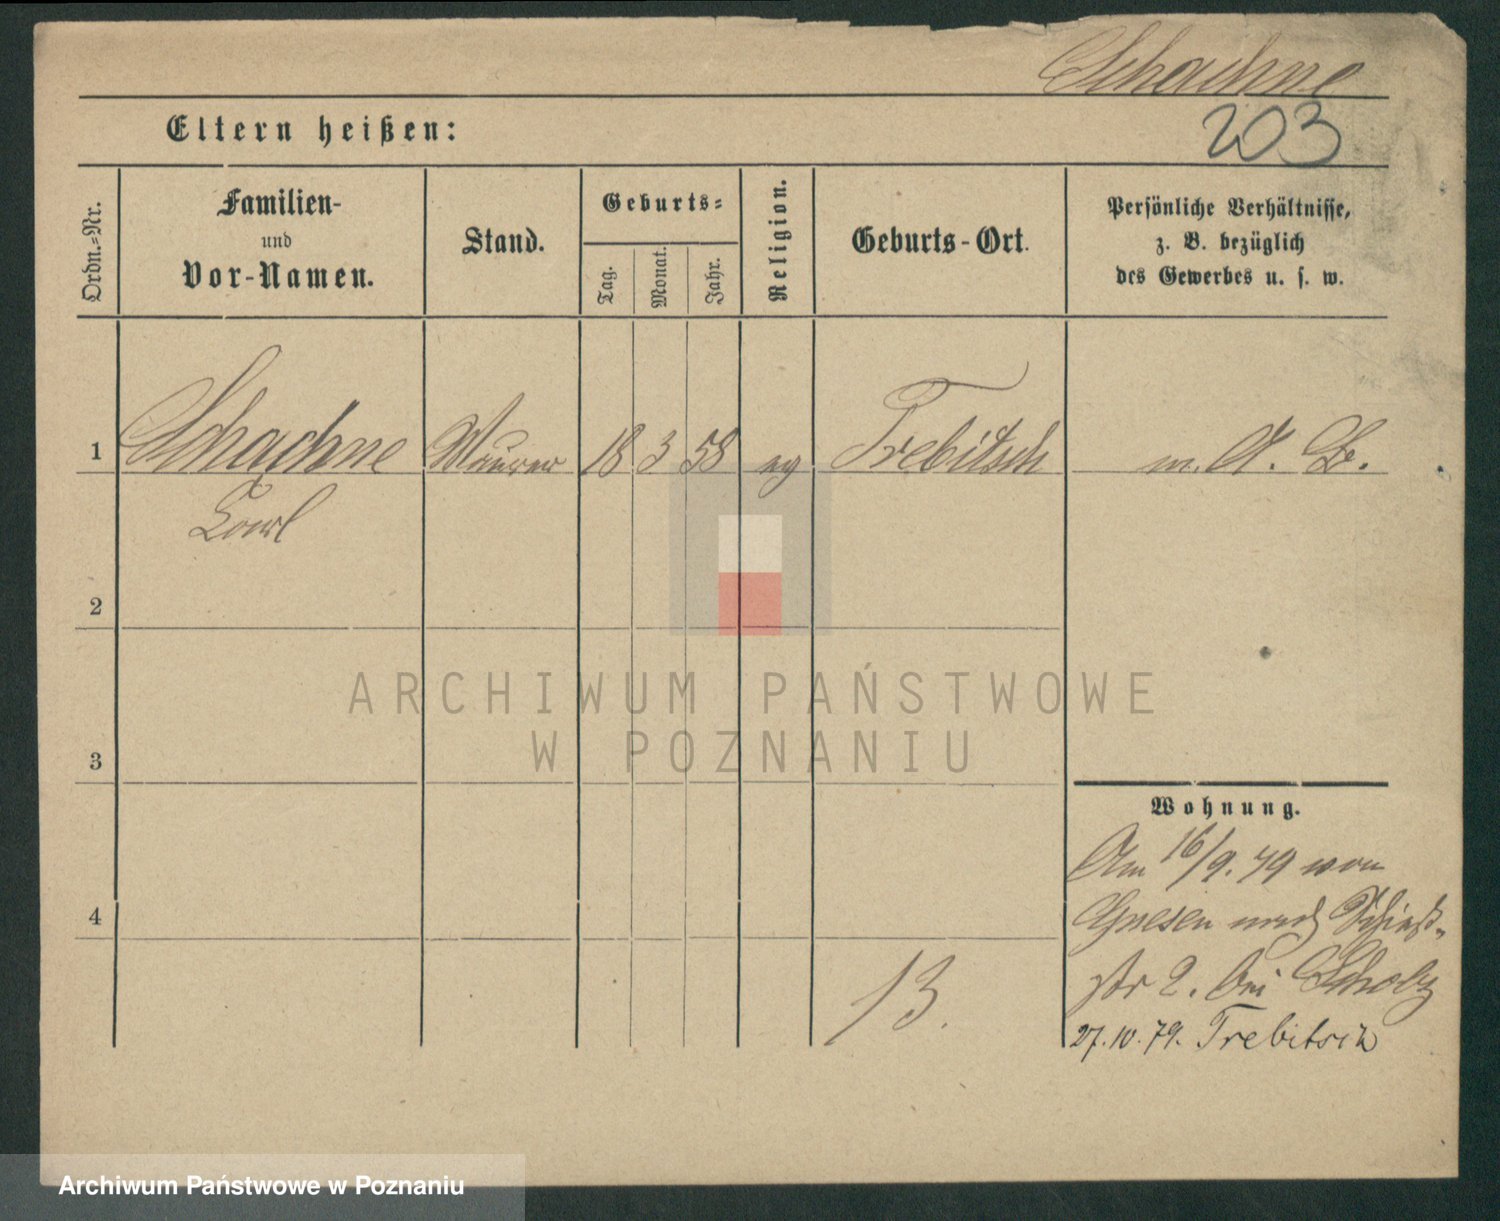 Schachne
203
Eltern heißen:
Ordn.=Nr.
Familien-
und
Vor-Namen.
Stand.
Geburts=
Tag.
Monat.
Jahr.
Religion.
Geburts-Ort.
Persönliche Verhältnisse,
z. B. bezüglich
des Gewerbes u. s. w.
1 Schachne Maurer 18 3 58 ev Trebitsch m. A. B.
Carl
2
3
4
ARCHIWUM PAŃSTWOWE
W POZNANIU
Wohnung.
Am 16/9. 79 von
Gnesen nach Schieß-
str 2. bei Scholz
27.10.79. Trebitsch
13.
Archiwum Państwowe w Poznaniu